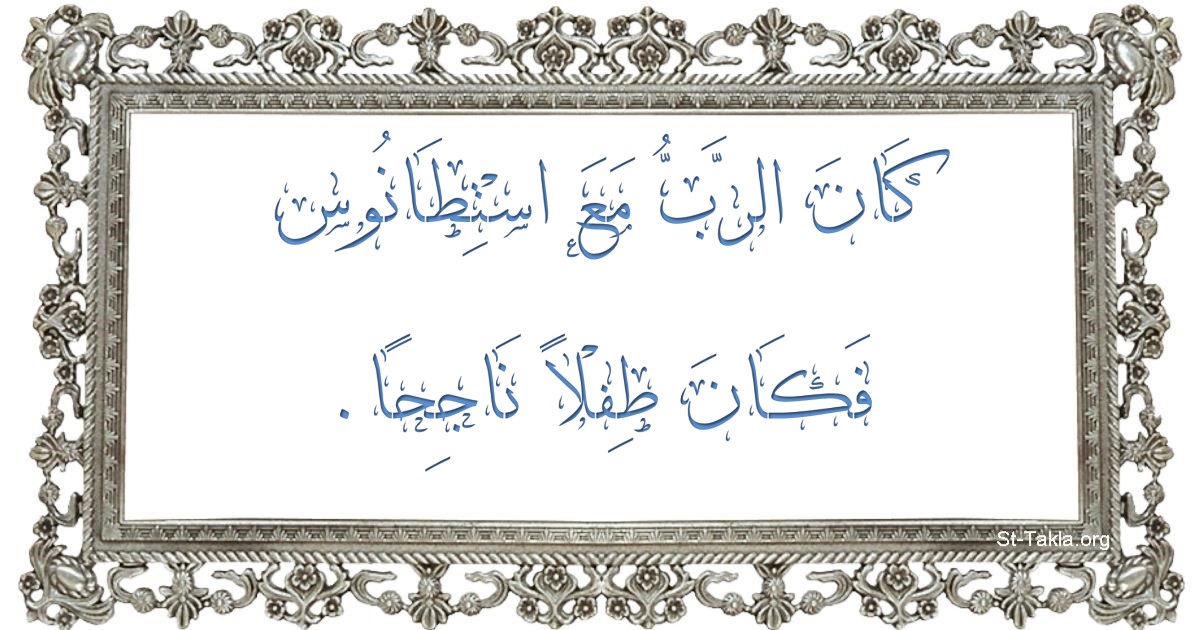 كَانَ الرَّبُّ مَعَ اسْتِطَانُوس
فَكَانَ طِفْلاً نَاجِحًا .
St-Takla.org